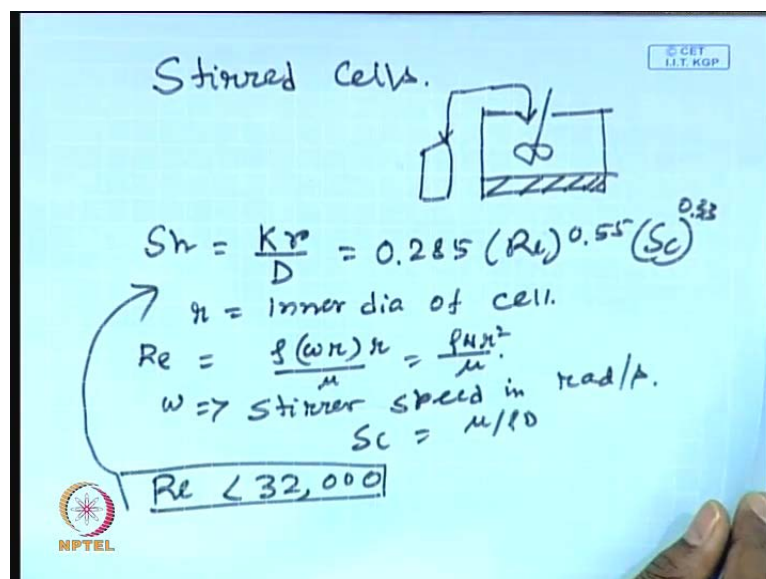 © CET
I.I.T. KGP
Stirred Cells.
Sh = Kr/D = 0.285 (Re)^0.55 (Sc)^0.33
r = Inner dia of cell.
Re = ρ(ωr)r/μ = ρωr²/μ.
ω => Stirrer speed in rad/s.
Sc = μ/ρD
Re < 32,000
NPTEL